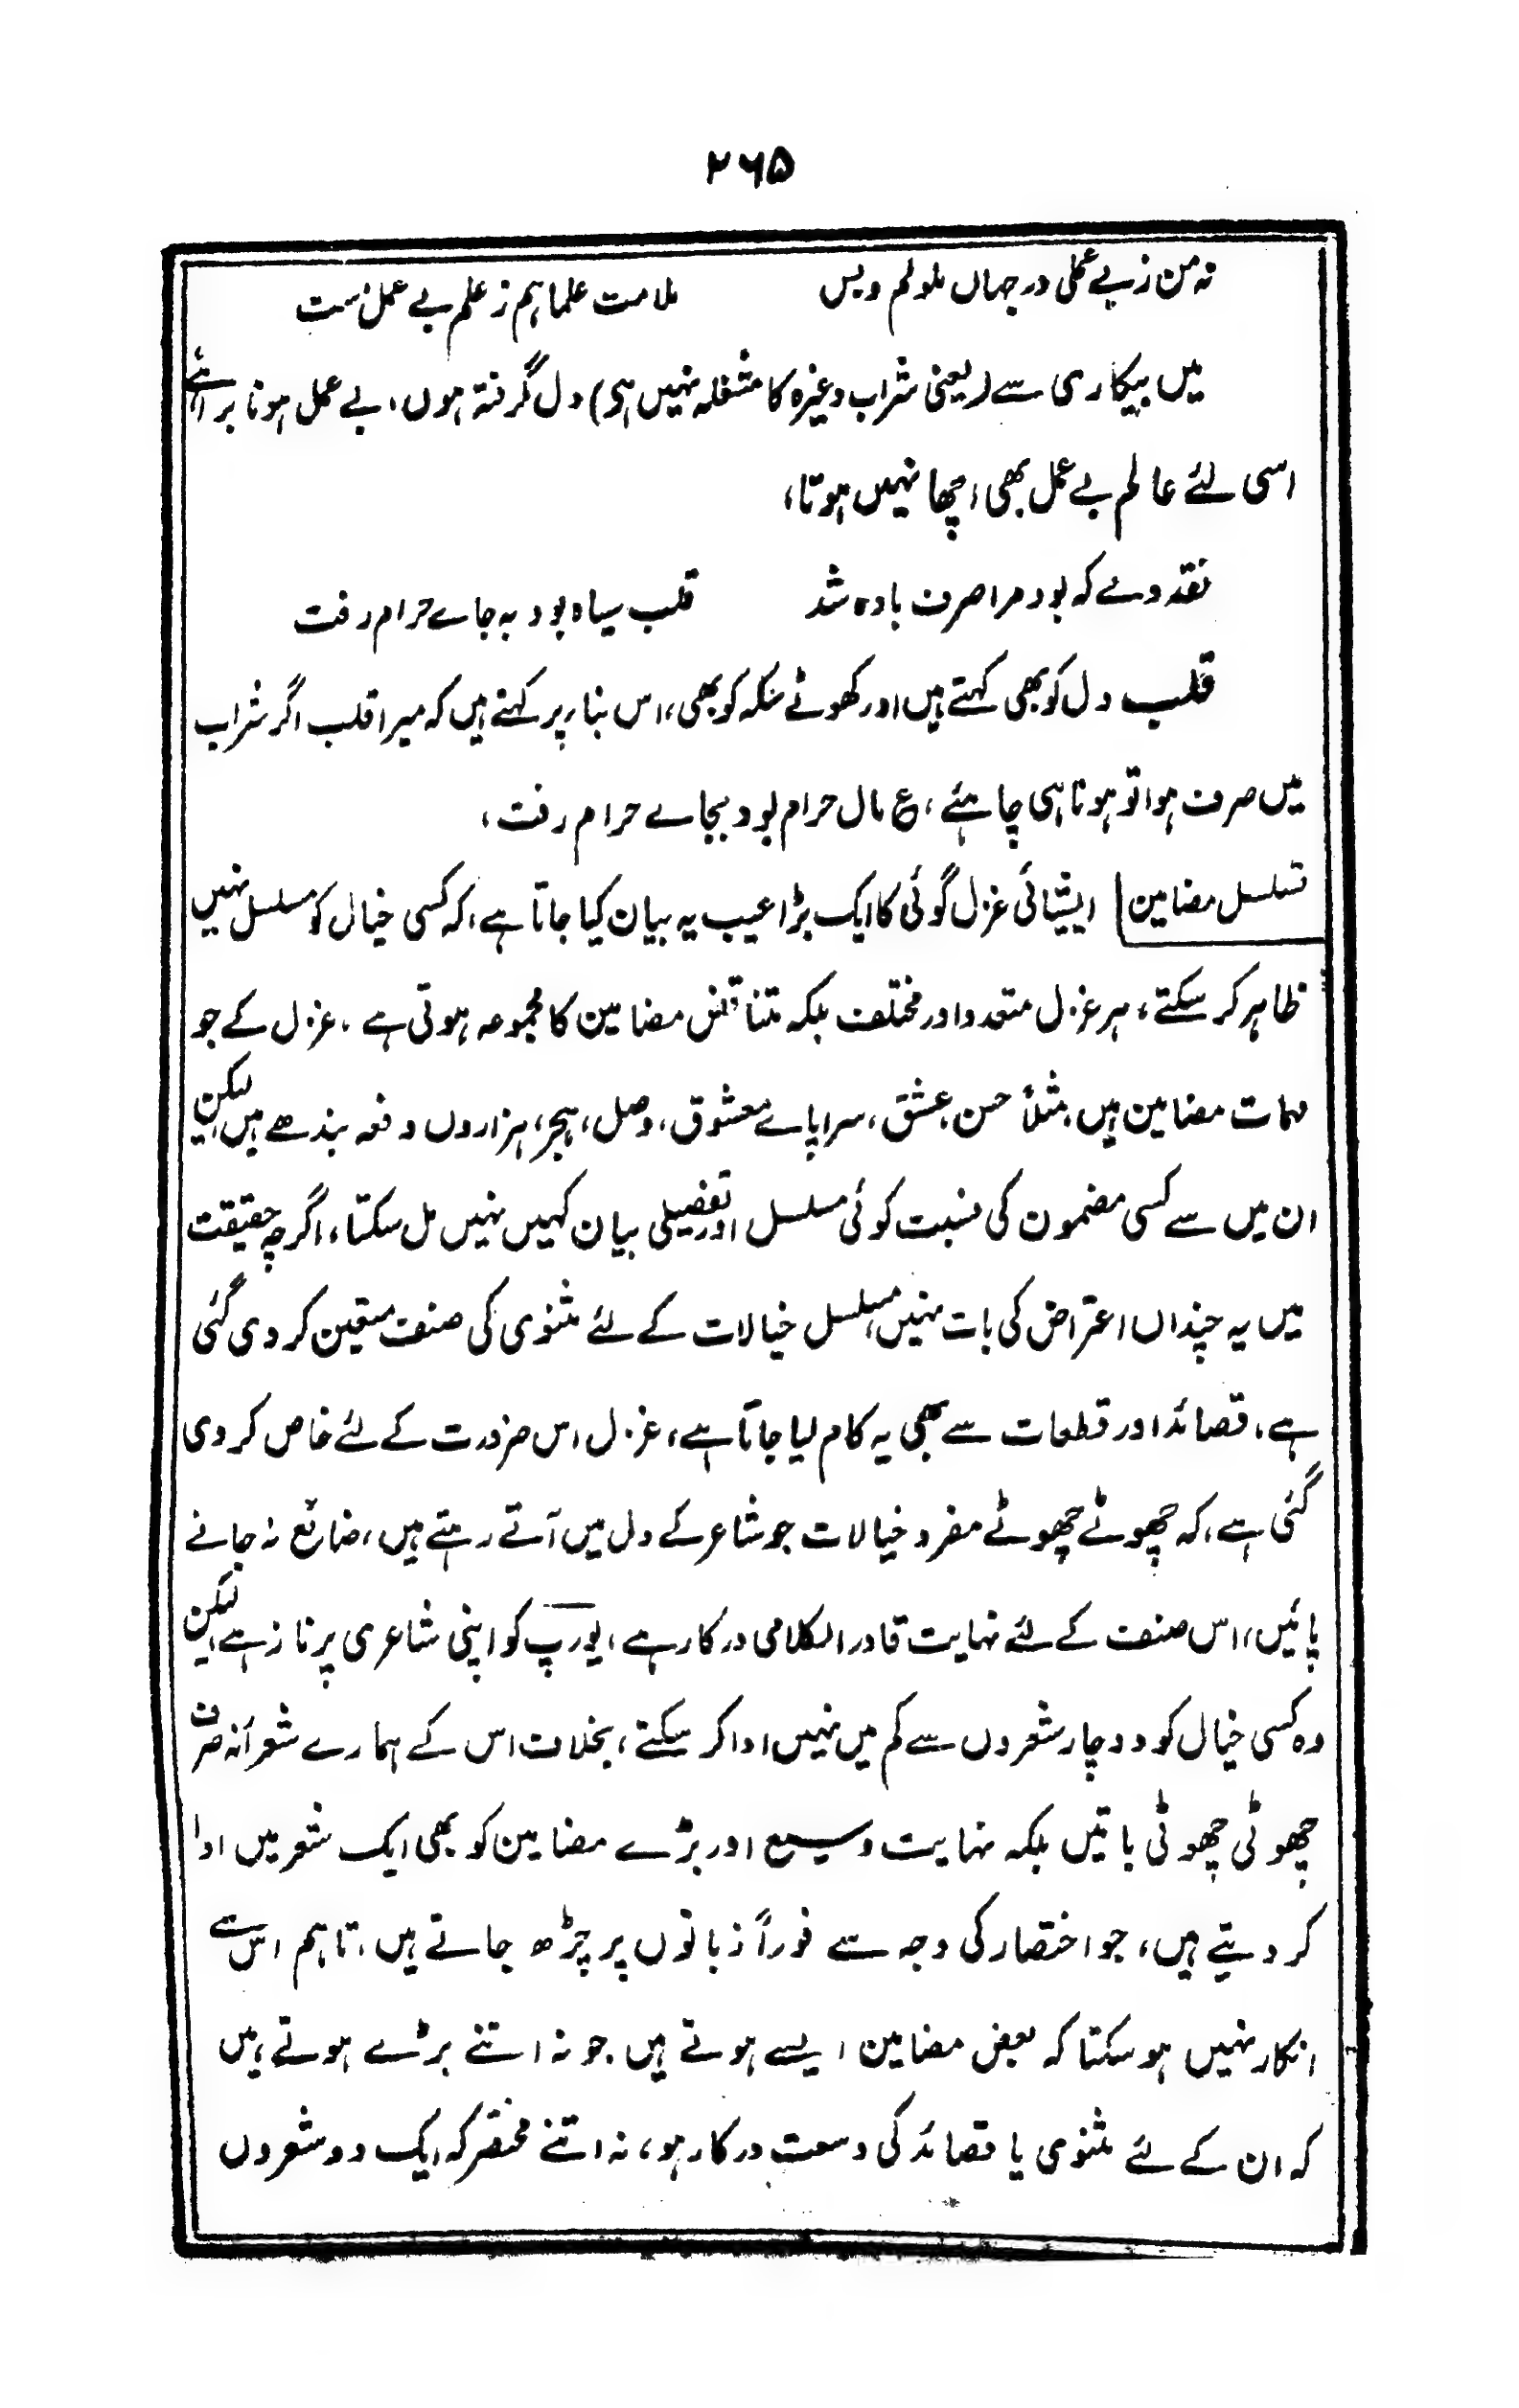 ۲۶۵
نہ من ز بے عملی در جہاں ملولم و بس ملامت علما ہم ز علم بے عمل ست
میں بیکاری سے (یعنی شراب وغیرہ کا مشغلہ نہیں ہی) دل گرفتہ ہوں، بے عمل ہونا برا ہے
اسی لئے عالم بے عمل بھی اچھا نہیں ہوتا،
نقد دلے کہ بود مرا صرف بادہ شد قلب سیاہ بود بہ جاے حرام رفت
قلب دل کو بھی کہتے ہیں اور کھوٹے سکہ کو بھی، اس بنا پر کہتے ہیں کہ میرا قلب اگر شراب
میں صرف ہوا تو ہونا ہی چاہئے، ع مال حرام بود بجاے حرام رفت،
تسلسل مضامین ایشیائی غزل گوئی کا ایک بڑا عیب یہ بیان کیا جاتا ہے، کہ کسی خیال کو مسلسل نہیں
ظاہر کر سکتے، ہر غزل متعدد اور مختلف بلکہ متناقض مضامین کا مجموعہ ہوتی ہے۔ غزل کے جو
مہمات مضامین ہیں، مثلاً حسن، عشق، سراپاے معشوق، وصل، ہجر، ہزاروں دفعہ بندھے ہیں لیکن
ان میں سے کسی مضمون کی نسبت کوئی مسلسل اور تفصیلی بیان کہیں نہیں مل سکتا، اگرچہ حقیقت
میں یہ چنداں اعتراض کی بات نہیں، مسلسل خیالات کے لئے مثنوی کی صنف متعین کر دی گئی
ہے، قصائد اور قطعات سے بھی یہ کام لیا جاتا ہے، غزل اس ضرورت کے لئے خاص کر دی
گئی ہے، کہ چھوٹے چھوٹے مفرد خیالات جو شاعر کے دل میں آتے رہتے ہیں، ضائع نہ جانے
پائیں، اس صنف کے لئے نہایت قادر الکلامی درکار ہے، یورپ کو اپنی شاعری پر ناز ہے، لیکن
وہ کسی خیال کو دو چار شعروں سے کم میں نہیں ادا کر سکتے، بخلاف اس کے ہمارے شعرا نہ صرف
چھوٹی چھوٹی باتیں بلکہ نہایت وسیع اور بڑے مضامین کو بھی ایک شعر میں ادا
کر دیتے ہیں، جو اختصار کی وجہ سے فوراً زبانوں پر چڑھ جاتے ہیں، تاہم اس سے
انکار نہیں ہو سکتا کہ بعض مضامین ایسے ہوتے ہیں جو نہ اتنے بڑے ہوتے ہیں
کہ ان کے لئے مثنوی یا قصائد کی وسعت درکار ہو، نہ اتنے مختصر کہ ایک دو شعروں